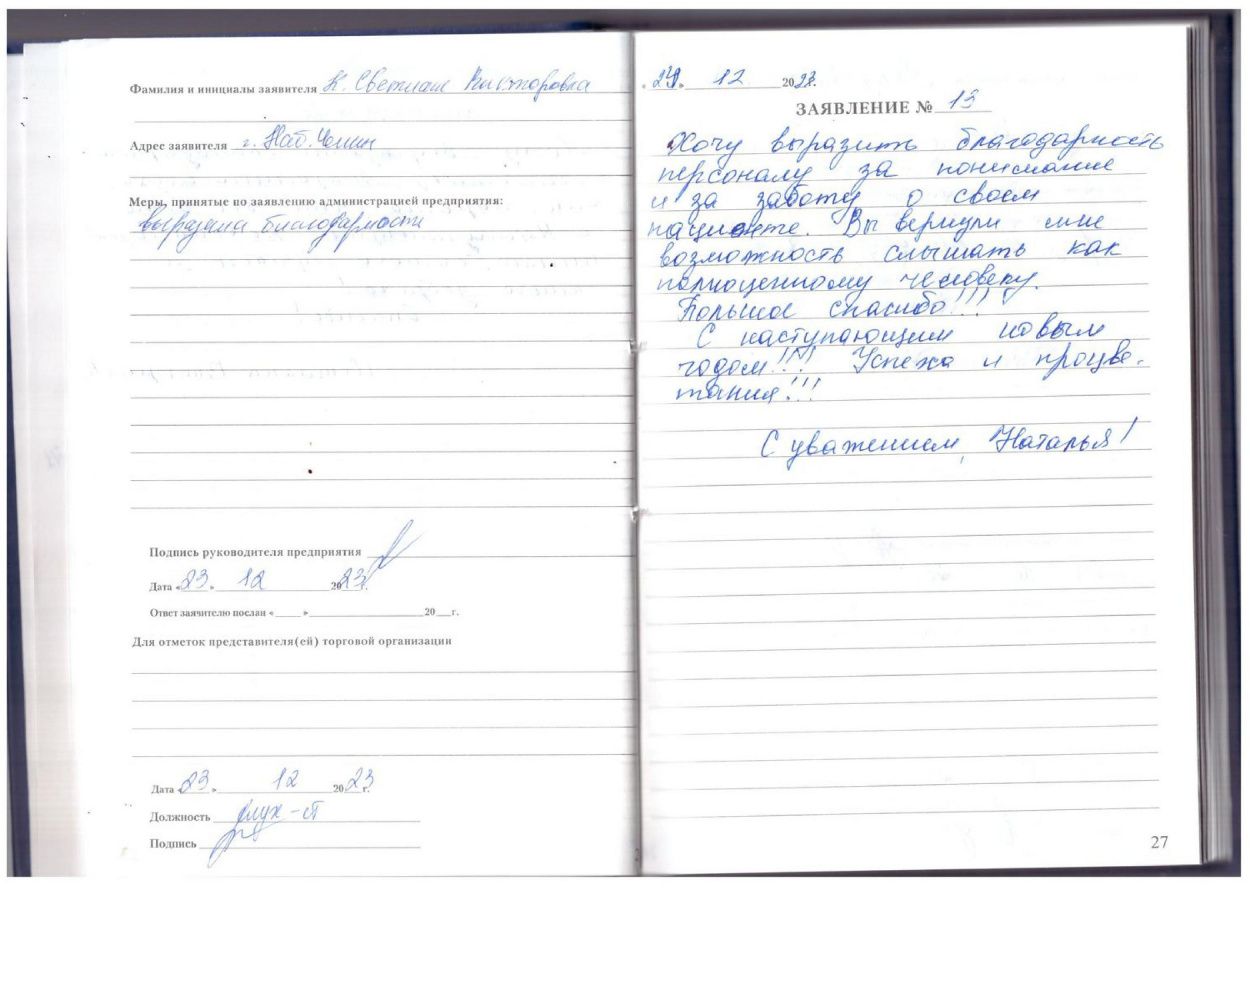 Фамилия и инициалы заявителя К. Светлана Викторовна
Адрес заявителя г. Наб. Челны
Меры, принятые по заявлению администрацией предприятия:
выражена благодарность
Подпись руководителя предприятия
Дата «23» 12 2023г.
Ответ заявителю послан « » 20 г.
Для отметок представителя(ей) торговой организации
Дата «23» 12 2023г.
Должность
Подпись
« » 12 20 г.
ЗАЯВЛЕНИЕ № 13
Хочу выразить благодарность
персоналу за понимание
и за заботу о своем
пациенте. Вы вернули мне
возможность слышать как
полноценному человеку.
Большое спасибо!!!!
С наступающим новым
годом!!!! Успеха и процве-
тания!!!
С уважением, Наталья!
27